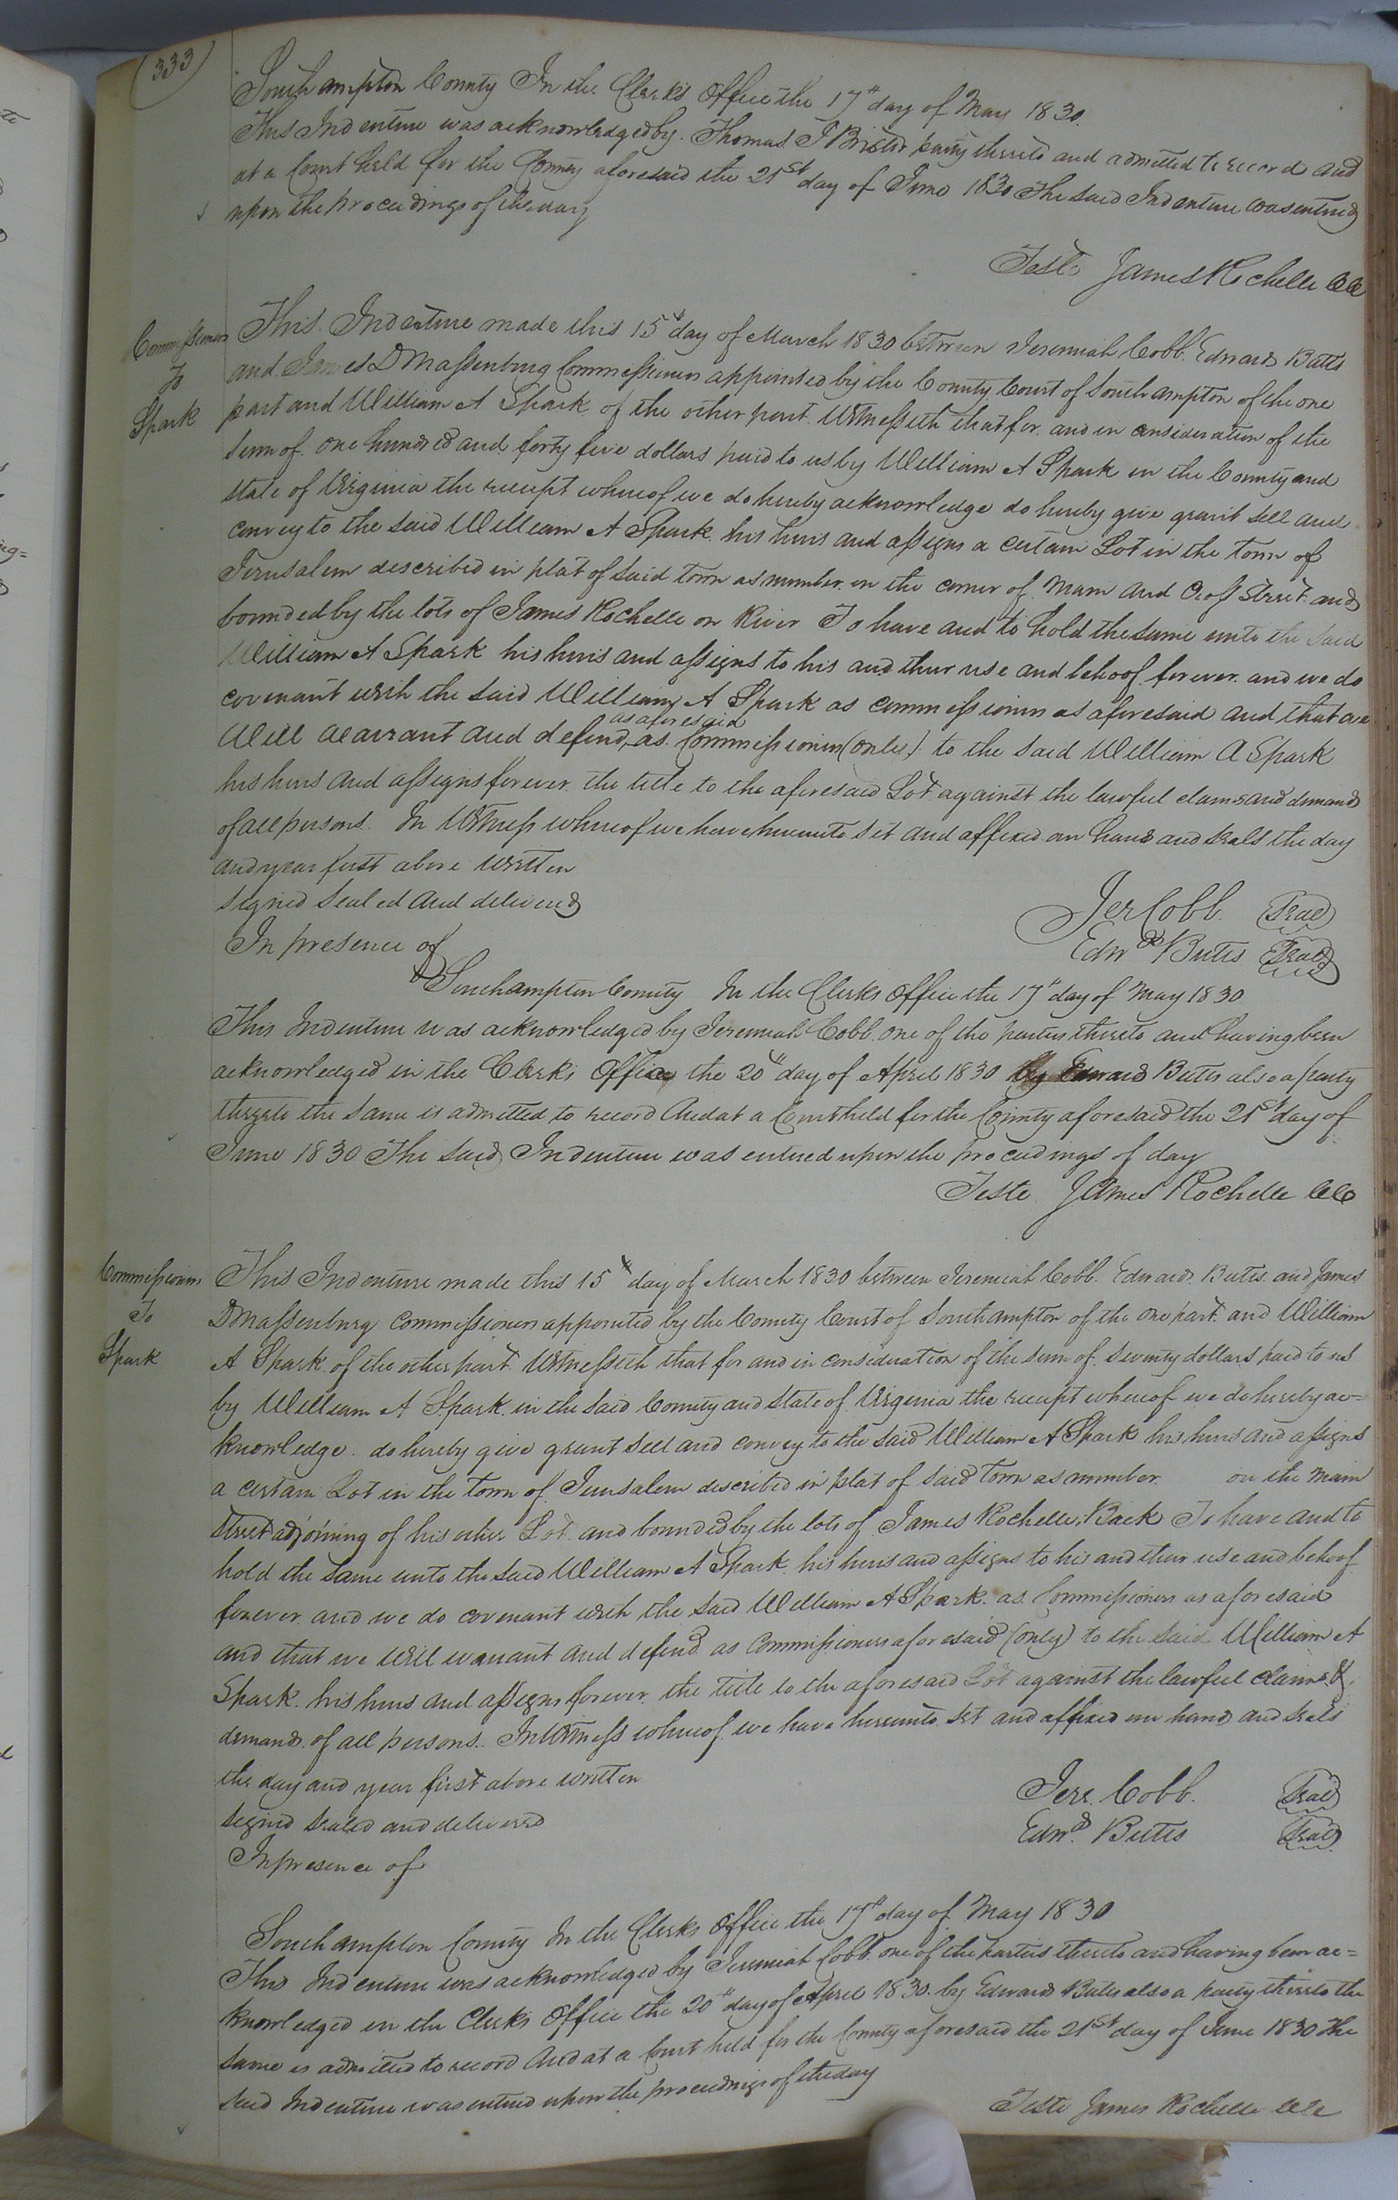 (333)
Southampton County In the Clerks Office the 17th day of May 1830.
This Indenture was acknowledged by Thomas J Bristor party thereto and admitted to record and
at a Court held for the County aforesaid the 21st day of June 1830 The said Indenture was entered
upon the proceedings of the day
Teste James Rochelle CC
Commissioners
To
Spark
This Indenture made this 15th day of March 1830 between Jeremiah Cobb Edward Butts
and James D Massenburg Commissioners appointed by the County Court of Southampton of the one
part and William A Spark of the other part Witnesseth that for and in consideration of the
sum of one hundred and forty five dollars paid to us by William A Spark in the County and
State of Virginia the receipt whereof we do hereby acknowledge do hereby give grant sell and
convey to the said William A Spark his heirs and assigns a certain Lot in the town of
Jerusalem described in plat of said town as number in the corner of Main and Cross Street and
bounded by the lots of James Rochelle on River To have and to hold the same unto the said
William A Spark his heirs and assigns to his and their use and behoof forever and we do
covenant with the said William A Spark as commissioners as aforesaid and that we
as aforesaid
Will warrant and defend as Commissioners (only) to the said William A Spark
his heirs and assigns forever the title to the aforesaid Lot against the lawful claims and demands
of all persons. In Witness whereof we have hereunto set and affixed our hands and seals the day
and year first above written
signed sealed and delivered
In presence of
Jer Cobb Seal
Edwd Butts Seal
Southampton County In the Clerks Office the 17th day of May 1830
This Indenture was acknowledged by Jeremiah Cobb one of the parties thereto and having been
acknowledged in the Clerks Office the 20th day of April 1830 by Edward Butts also a party
thereto the same is admitted to record And at a Court held for the County aforesaid the 21st day of
June 1830 The said Indenture was entered upon the proceedings of day
Teste James Rochelle CC
Commissioners
To
Spark
This Indenture made this 15th day of March 1830 between Jeremiah Cobb Edward Butts and James
D Massenburg Commissioners appointed by the County Court of Southampton of the one part and William
A Spark of the other part Witnesseth that for and in consideration of the sum of seventy dollars paid to us
by William A Spark in the said County and State of Virginia the receipt whereof we do hereby ac=
knowledge do hereby give grant sell and convey to the said William A Spark his heirs and assigns
a certain Lot in the town of Jerusalem described in plat of said town as number on the main
street adjoining of his other Lot and bounded by the lots of James Rochelle Back To have and to
hold the same unto the said William A Spark his heirs and assigns to his and their use and behoof
forever and we do covenant with the said William A Spark as Commissioners as aforesaid
and that we will warrant and defend as Commissioners aforesaid (only) to the said William A
Spark his heirs and assigns forever the title to the aforesaid Lot against the lawful claims &
demands of all persons. In Witness whereof we have hereunto set and affixed our hand and seals
the day and year first above written
signed sealed and delivered
In presence of
Jere. Cobb. Seal
Edwd. Butts Seal
Southampton County In the Clerks Office the 17th day of May 1830
This Indenture was acknowledged by Jeremiah Cobb one of the parties thereto and having been ac=
knowledged in the Clerks Office the 20th day of April 1830 by Edward Butts also a party thereto the
same is admitted to record And at a Court held for the County aforesaid the 21st day of June 1830 The
said Indenture was entered upon the proceedings of the day
Teste James Rochelle CC